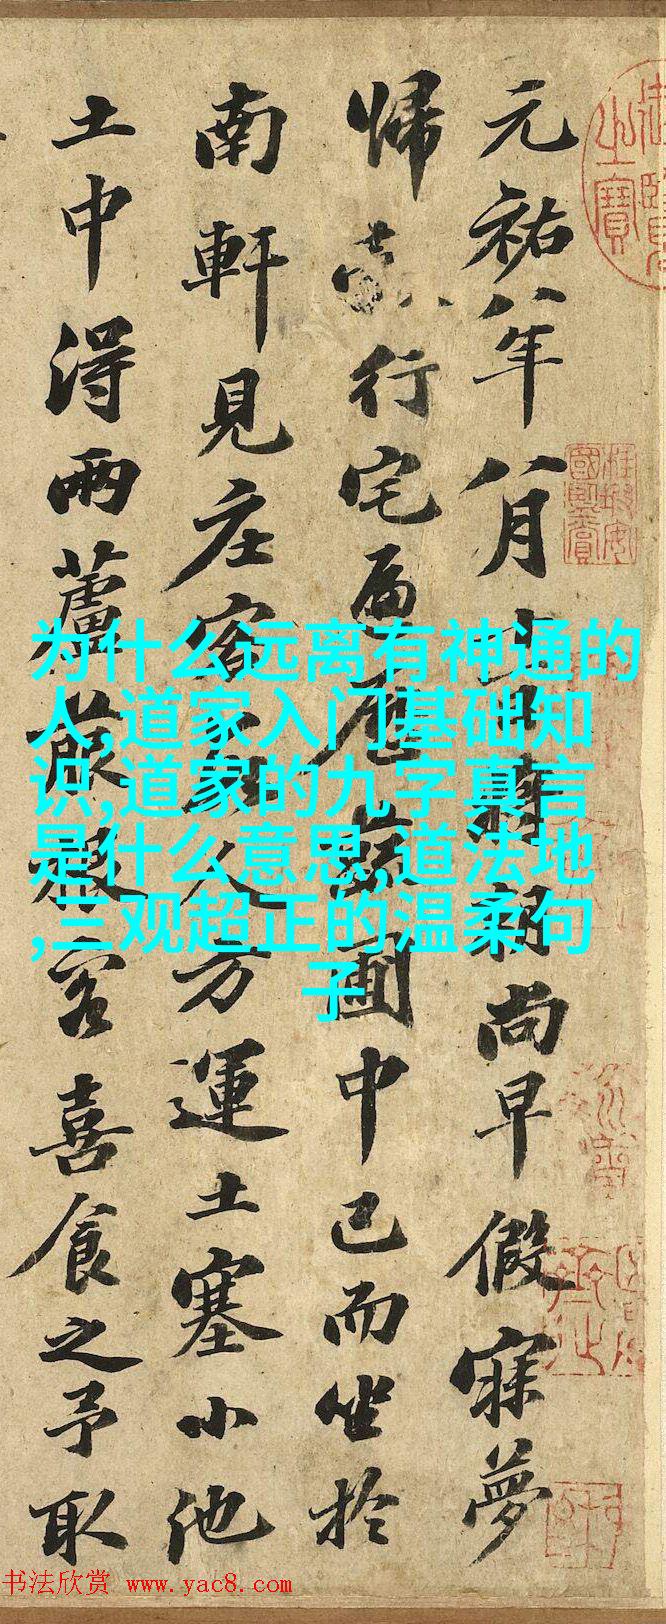 元祐八年八月十一日將朝尚早假寐夢
歸行宅遍歷蔬圃中已而坐於
南軒見庄客數人方運土塞小池
土中得兩蘆菔根客喜食之予取
为什么远离有神通的
人,道家入门基础知
识,道家的九字真言
是什么意思,道法地
,三观超正的温柔句
子
书法欣赏 www.yac8.com